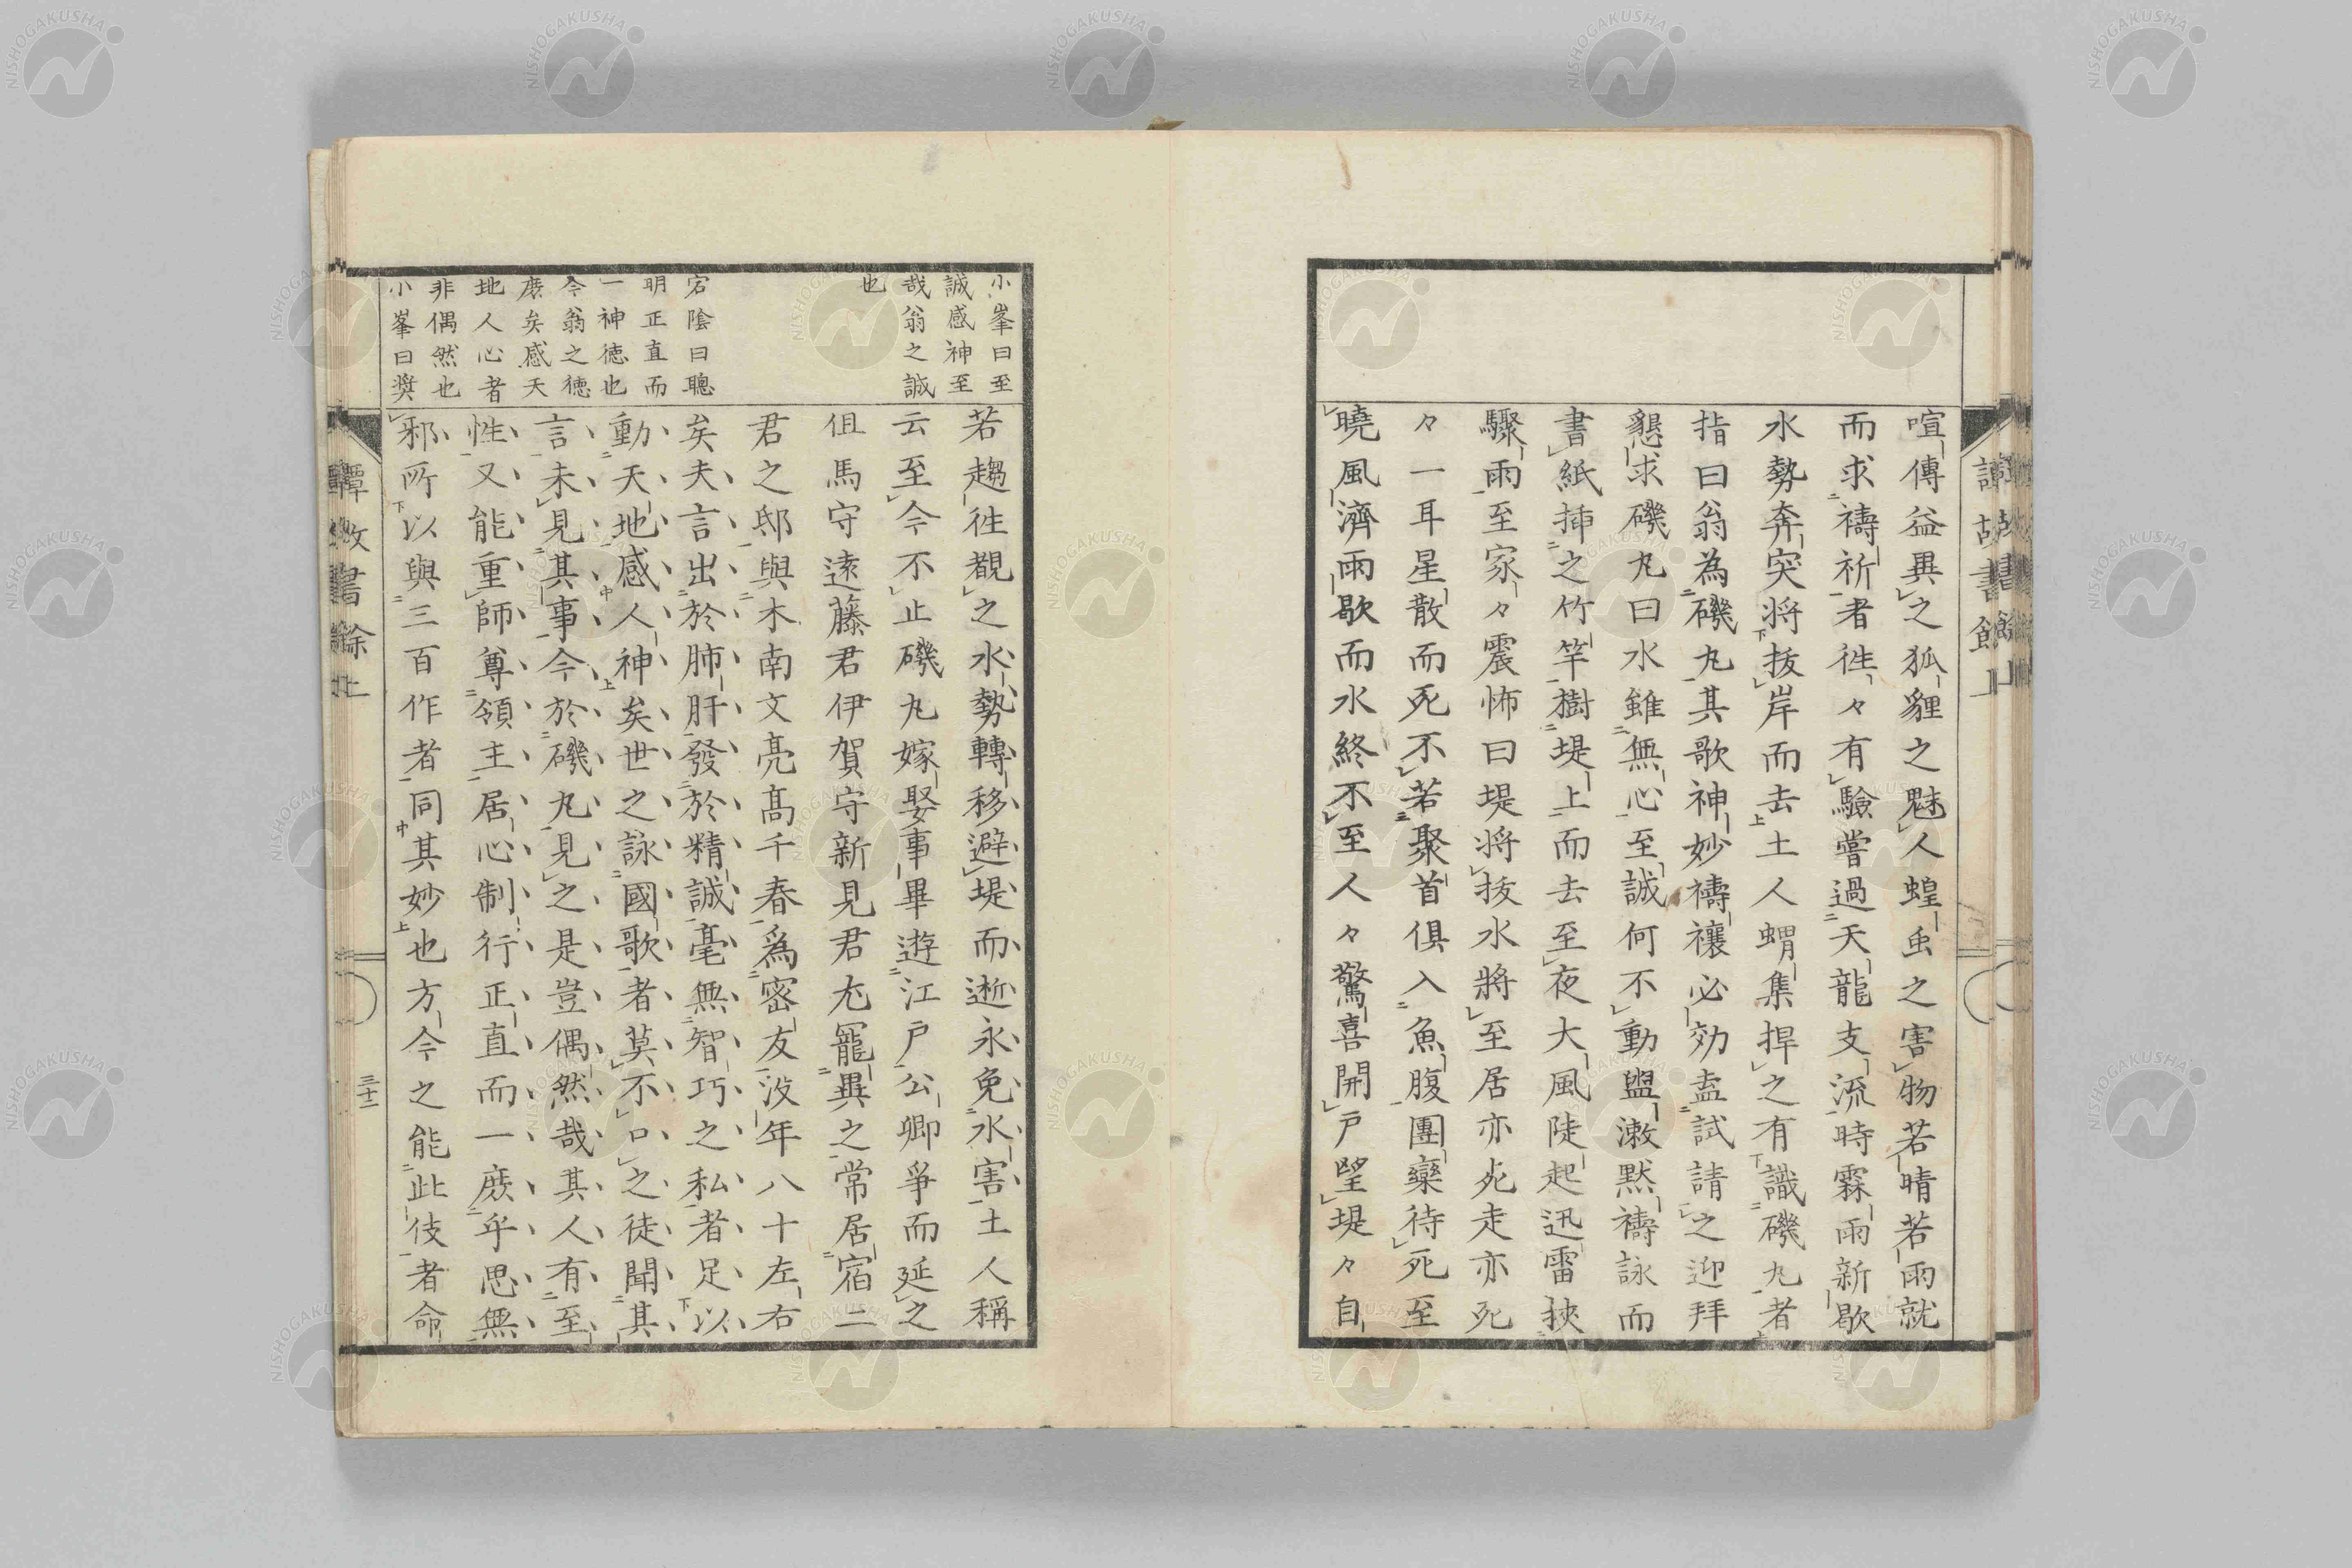 喧傳益異之狐貍之魅人蝗虫之害物若晴若雨就
而求禱祈者徃々有驗嘗過天龍支流時霖雨新歇
水勢奔突将拔岸而去土人蝟集捍之有識磯丸者
指曰翁為磯丸其歌神妙禱禳必効盍試請之迎拜
懇求磯丸曰水雖無心至誠何不動盥漱默禱詠而
書紙挿之竹竿樹堤上而去至夜大風陡起迅雷挾
驟雨至家々震怖曰堤将拔水將至居亦死走亦死
々一耳星散而死不若聚首俱入魚腹團欒待死至
曉風濟雨歇而水終不至人々驚喜開戸望堤々自
若趨徃觀之水勢轉移避堤而逝永免水害土人稱
云至今不止磯丸嫁娶事畢遊江戸公卿爭而延之
但馬守遠藤君伊賀守新見君尤寵異之常居宿二
君之邸與木南文亮高千春爲密友沒年八十左右
矣夫言出於肺肝發於精誠毫無智巧之私者足以
動天地感人神矣世之詠國歌者莫不口之徒聞其
言未見其事今於磯丸見之是豈偶然哉其人有至
性又能重師尊領主居心制行正直而一庶乎思無
邪所以與三百作者同其妙也方今之能此伎者命
小峯曰至
誠感神至
哉翁之誠
也
宕陰曰聰
明正直而
一神徳也
今翁之徳
庶矣感天
地人心者
非偶然也
小峯曰奬
譚故書餘上
三十二
NISHOGAKUSHA